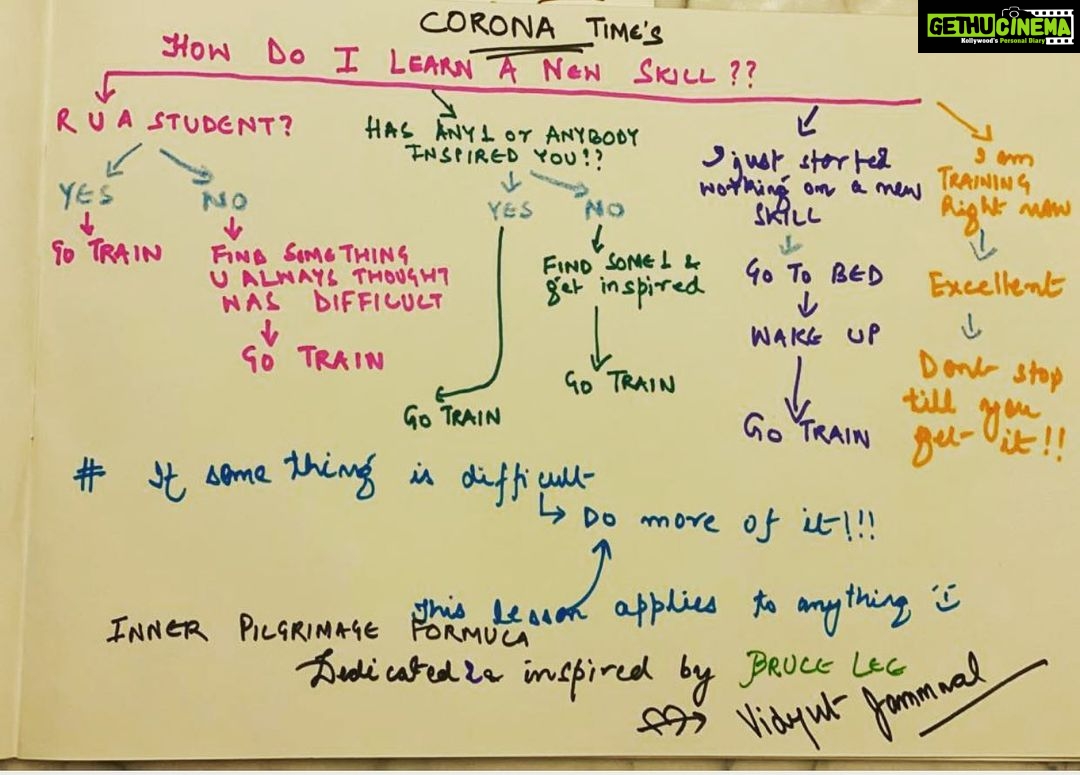 GETHUCINEMA
Kollywood's Personal Diary
CORONA TIME'S
HOW DO I LEARN A NEW SKILL ??
R U A STUDENT?
YES
GO TRAIN
NO
FIND SOMETHING
U ALWAYS THOUGHT
WAS DIFFICULT
GO TRAIN
HAS ANY1 or ANYBODY
INSPIRED YOU!?
YES
GO TRAIN
NO
FIND SOME1 &
get inspired
GO TRAIN
I just started
working on a new
SKILL
GO TO BED
WAKE UP
GO TRAIN
I am
TRAINING
Right now
Excellent
Dont stop
till you
get it!!
# If some thing is difficult
Do more of it!!!
This lesson applies to anything
INNER PILGRIMAGE FORMULA
Dedicated 2 & inspired by BRUCE LEE
Vidyut Jammwal